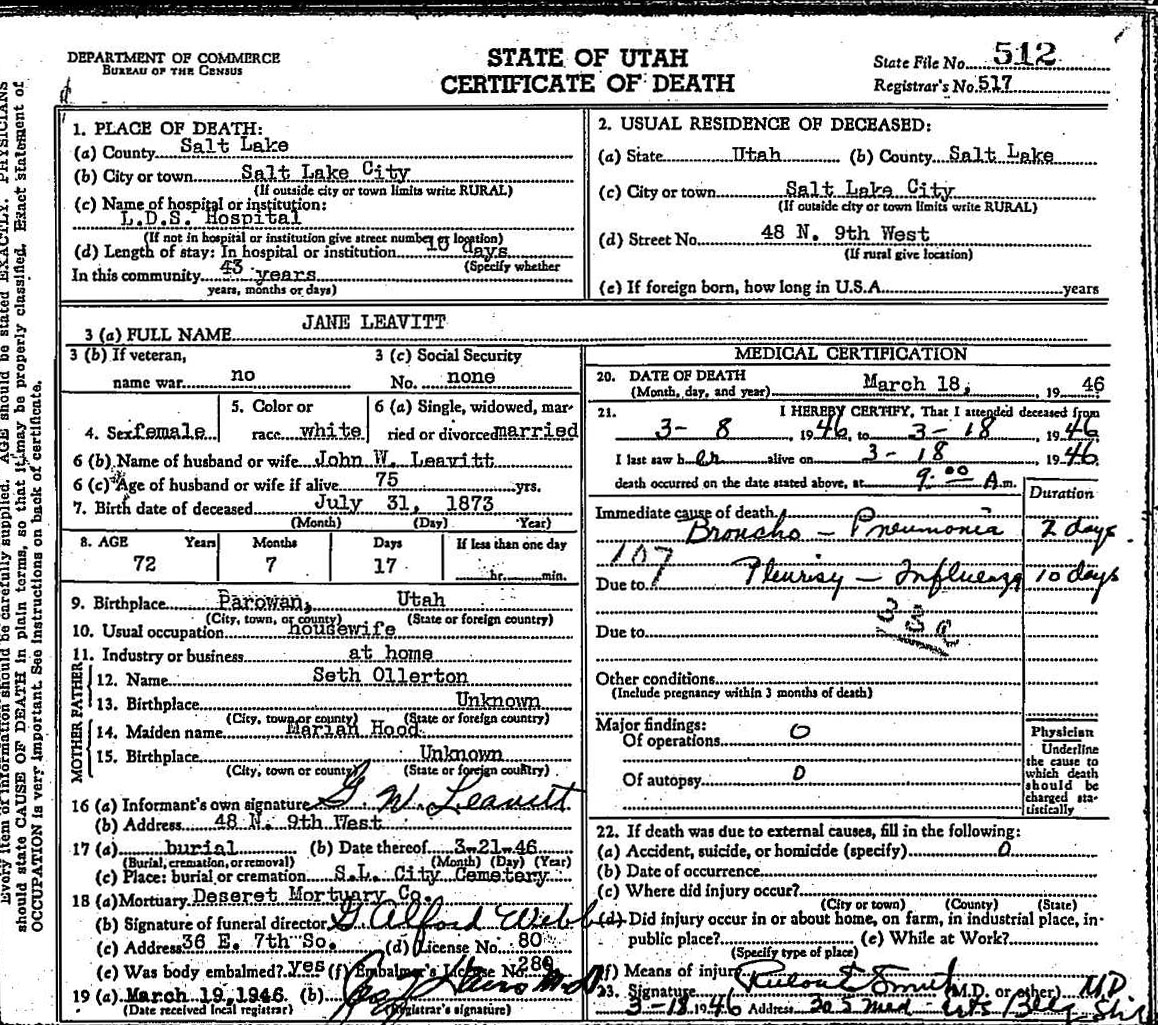 DEPARTMENT OF COMMERCE
BUREAU OF THE CENSUS
STATE OF UTAH
CERTIFICATE OF DEATH
State File No. 512
Registrar's No. 517
1. PLACE OF DEATH:
(a) County Salt Lake
(b) City or town Salt Lake City
(If outside city or town limits write RURAL)
(c) Name of hospital or institution:
L.D.S. Hospital
(If not in hospital or institution give street number or location)
(d) Length of stay: In hospital or institution 10 days
(Specify whether
In this community 43 years
years, months or days)
2. USUAL RESIDENCE OF DECEASED:
(a) State Utah (b) County Salt Lake
(c) City or town Salt Lake City
(If outside city or town limits write RURAL)
(d) Street No. 48 N. 9th West
(If rural give location)
(e) If foreign born, how long in U.S.A. years
3 (a) FULL NAME JANE LEAVITT
3 (b) If veteran,
name war no
3 (c) Social Security
No. none
4. Sex female
5. Color or
race white
6 (a) Single, widowed, mar-
ried or divorced married
6 (b) Name of husband or wife John W. Leavitt
6 (c) Age of husband or wife if alive 75 yrs.
7. Birth date of deceased July 31, 1873
(Month) (Day) (Year)
8. AGE Years Months Days If less than one day
72 7 17 hr. min.
9. Birthplace Parowan, Utah
(City, town, or county) (State or foreign country)
10. Usual occupation housewife
11. Industry or business at home
FATHER
12. Name Seth Ollerton
13. Birthplace Unknown
(City, town or county) (State or foreign country)
MOTHER
14. Maiden name Mariah Hood
15. Birthplace Unknown
(City, town or county) (State or foreign country)
16 (a) Informant's own signature G W. Leavitt
(b) Address 48 N. 9th West
17 (a) burial (b) Date thereof 3-21-46
(Burial, cremation, or removal) (Month) (Day) (Year)
(c) Place: burial or cremation S.L. City Cemetery
18 (a) Mortuary Deseret Mortuary Co.
(b) Signature of funeral director G Alford Webb
(c) Address 36 E. 7th So. (d) License No. 80
(e) Was body embalmed? yes (f) Embalmer's License No. 280
19 (a) March 19, 1946 (b) M.D.
(Date received local registrar) (Registrar's signature)
MEDICAL CERTIFICATION
20. DATE OF DEATH
(Month, day, and year) March 18, 19 46
21. I HEREBY CERTIFY, That I attended deceased from
3- 8 1946, to 3-18, 1946
I last saw her alive on 3-18 1946.
death occurred on the date stated above, at 9:00 A m.
Duration
Immediate cause of death
Broncho - Pneumonia 2 days
107
Due to Pleurisy - Influenza 10 days
Due to 33a
Other conditions
(Include pregnancy within 3 months of death)
Major findings:
Of operations 0
Of autopsy 0
Physician
Underline
the cause to
which death
should be
charged sta-
tistically
22. If death was due to external causes, fill in the following:
(a) Accident, suicide, or homicide (specify) 0
(b) Date of occurrence
(c) Where did injury occur?
(City or town) (County) (State)
(d) Did injury occur in or about home, on farm, in industrial place, in-
public place? (e) While at Work?
(Specify type of place)
(f) Means of injury
23. Signature Smith (M.D. or other) M.D.
3-18 1946 Address 203 Med Arts Bldg
Every item of information should be carefully supplied. AGE should be stated EXACTLY. PHYSICIANS
should state CAUSE OF DEATH in plain terms, so that it may be properly classified. Exact statement of
OCCUPATION is very important. See instructions on back of certificate.